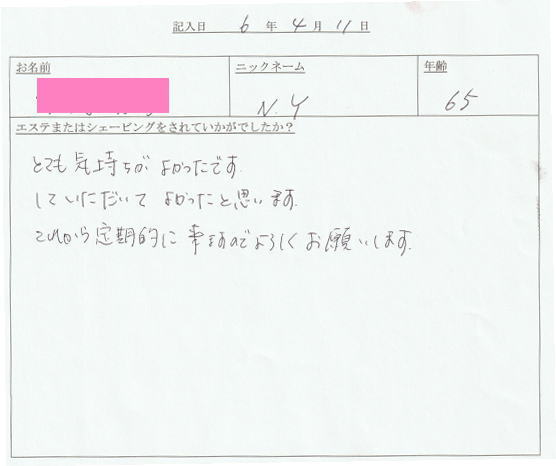 記入日 6 年 4 月 11 日
お名前 ニックネーム 年齢
N.Y 65
エステまたはシェービングをされていかがでしたか？
とても気持ちがよかったです。
していただいてよかったと思います。
これから定期的に来ますのでよろしくお願いします。